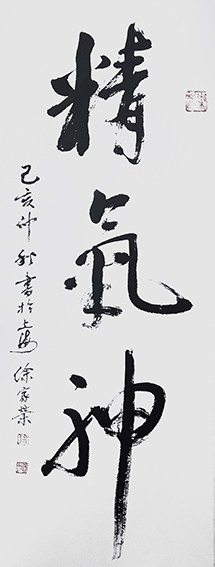 精氣神
己亥仲秋書於上海徐家榮